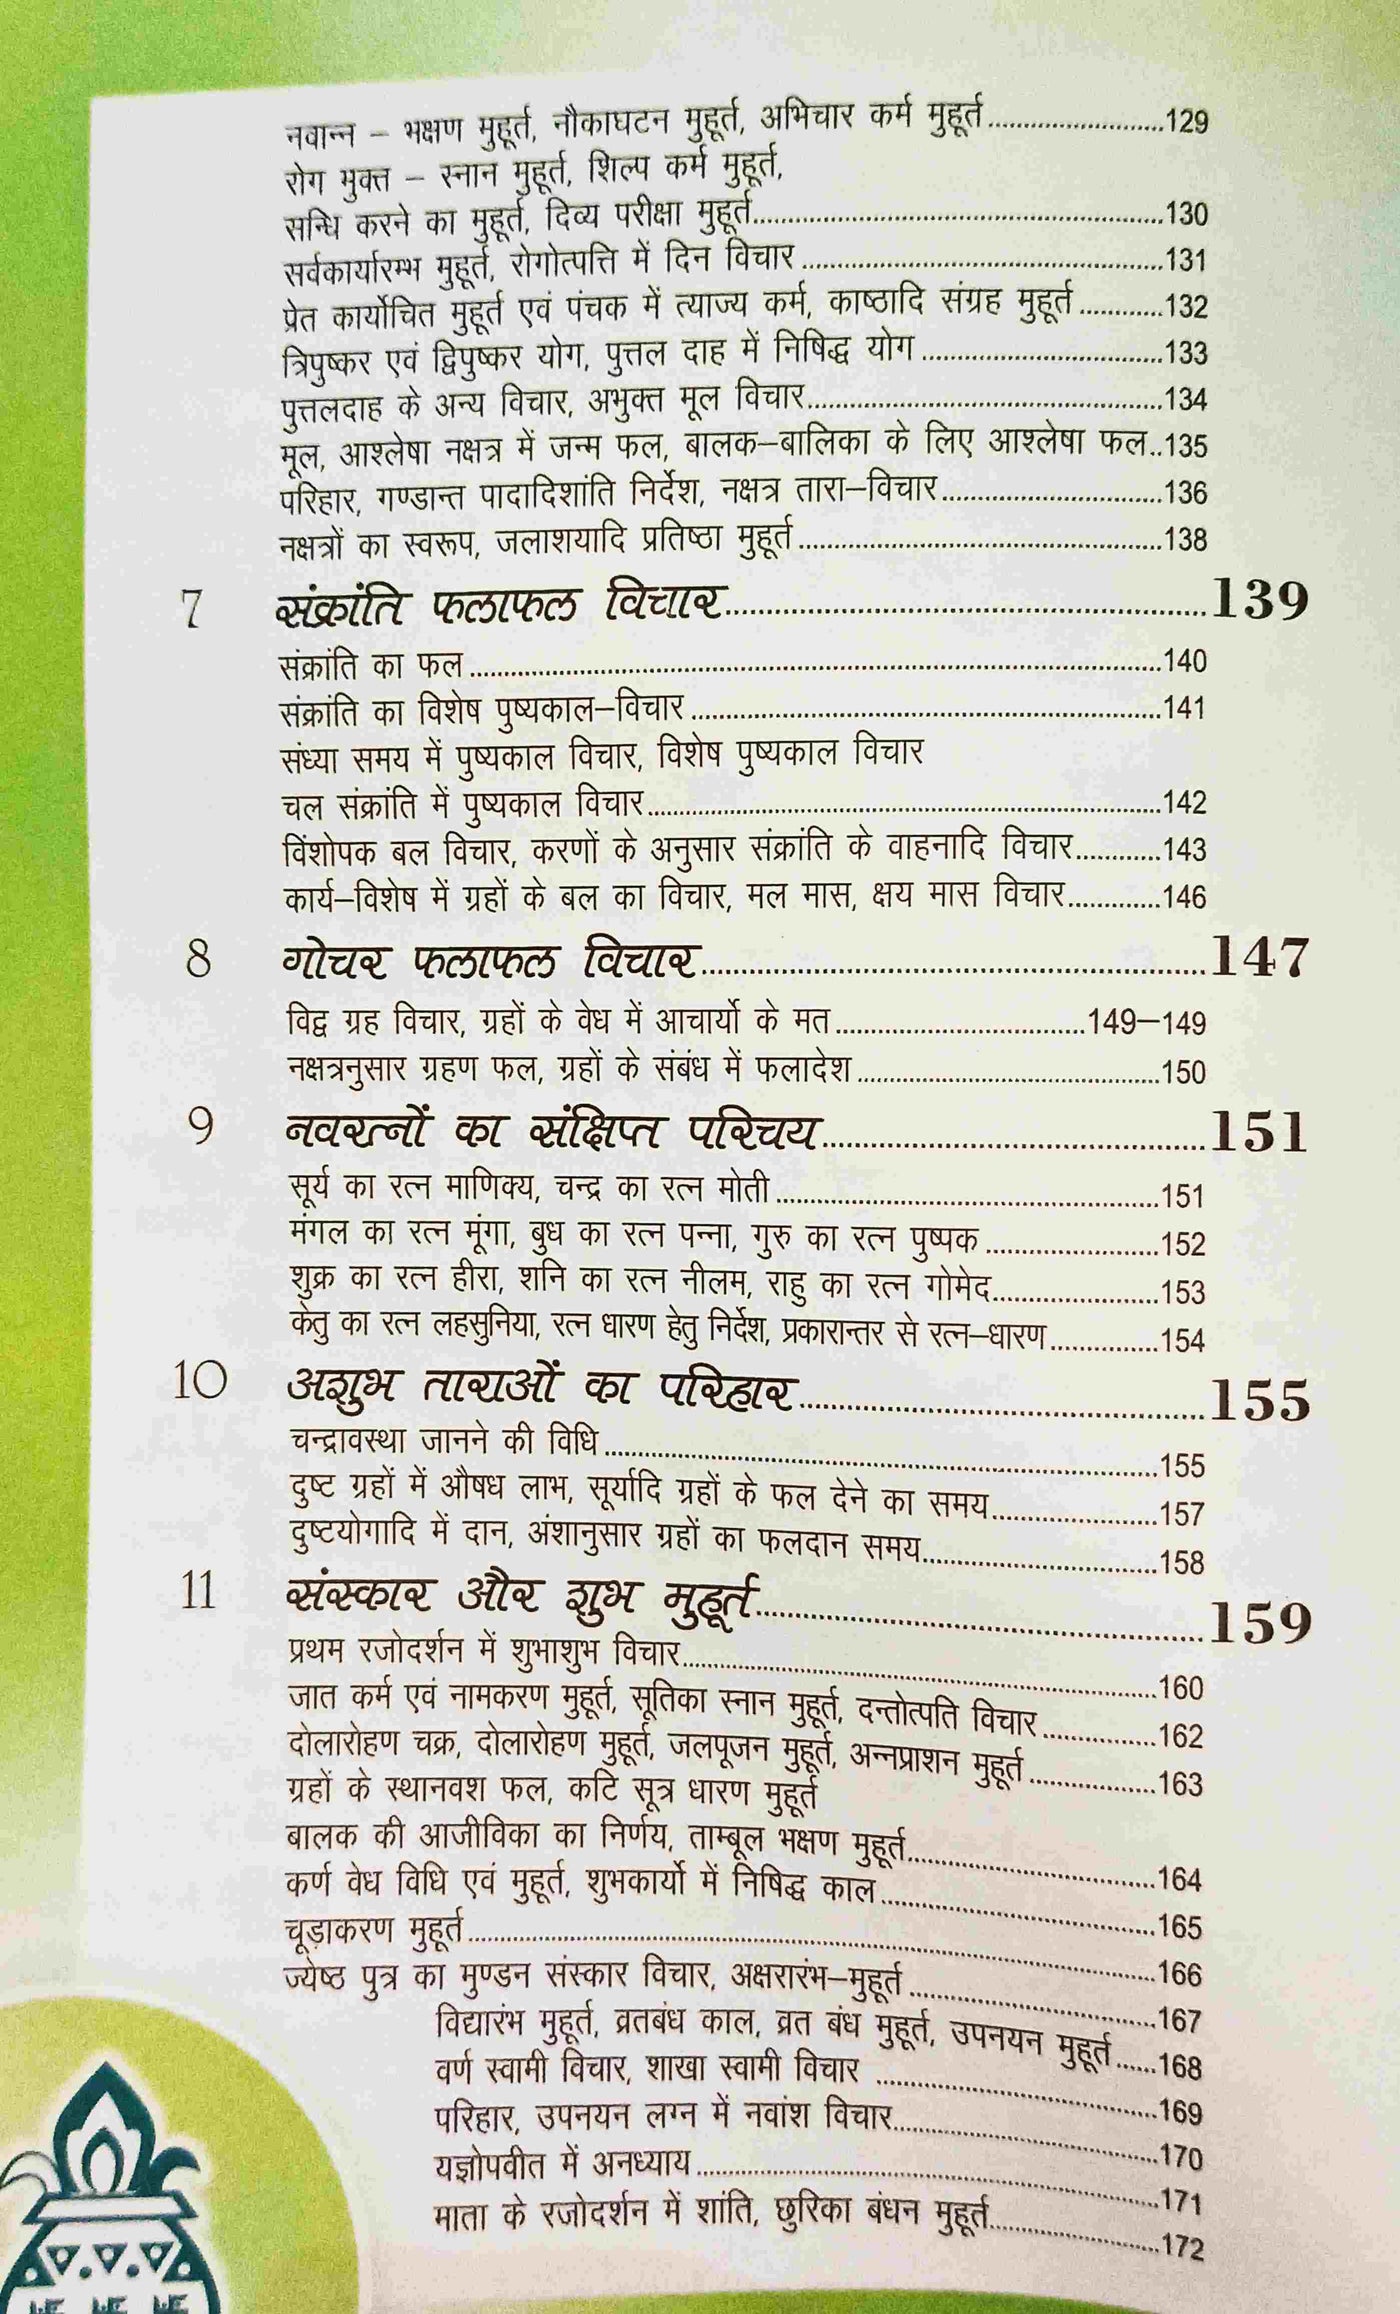 नवान्न – भक्षण मुहूर्त, नौकाघटन मुहूर्त, अभिचार कर्म मुहूर्त........................129
रोग मुक्त – स्नान मुहूर्त, शिल्प कर्म मुहूर्त,
सन्धि करने का मुहूर्त, दिव्य परीक्षा मुहूर्त........................130
सर्वकार्यारम्भ मुहूर्त, रोगोत्पत्ति में दिन विचार........................131
प्रेत कार्योचित मुहूर्त एवं पंचक में त्याज्य कर्म, काष्ठादि संग्रह मुहूर्त............132
त्रिपुष्कर एवं द्विपुष्कर योग, पुत्तल दाह में निषिद्ध योग........................133
पुत्तलदाह के अन्य विचार, अभुक्त मूल विचार........................134
मूल, आश्लेषा नक्षत्र में जन्म फल, बालक–बालिका के लिए आश्लेषा फल..135
परिहार, गण्डान्त पादादिशांति निर्देश, नक्षत्र तारा–विचार........................136
नक्षत्रों का स्वरूप, जलाशयादि प्रतिष्ठा मुहूर्त........................138
7 संक्रांति फलाफल विचार........................139
संक्रांति का फल........................140
संक्रांति का विशेष पुष्यकाल–विचार........................141
संध्या समय में पुष्यकाल विचार, विशेष पुष्यकाल विचार
चल संक्रांति में पुष्यकाल विचार........................142
विंशोपक बल विचार, करणों के अनुसार संक्रांति के वाहनादि विचार............143
कार्य–विशेष में ग्रहों के बल का विचार, मल मास, क्षय मास विचार.............146
8 गोचर फलाफल विचार........................147
विद्व ग्रह विचार, ग्रहों के वेध में आचार्यो के मत........................149–149
नक्षत्रनुसार ग्रहण फल, ग्रहों के संबंध में फलादेश........................150
9 नवरत्नों का संक्षिप्त परिचय........................151
सूर्य का रत्न माणिक्य, चन्द्र का रत्न मोती........................151
मंगल का रत्न मूंगा, बुध का रत्न पन्ना, गुरु का रत्न पुष्पक........................152
शुक्र का रत्न हीरा, शनि का रत्न नीलम, राहु का रत्न गोमेद........................153
केतु का रत्न लहसुनिया, रत्न धारण हेतु निर्देश, प्रकारान्तर से रत्न–धारण...............154
10 अशुभ ताराओं का परिहार........................155
चन्द्रावस्था जानने की विधि........................155
दुष्ट ग्रहों में औषध लाभ, सूर्यादि ग्रहों के फल देने का समय........................157
दुष्टयोगादि में दान, अंशानुसार ग्रहों का फलदान समय........................158
11 संस्कार और शुभ मुहूर्त........................159
प्रथम रजोदर्शन में शुभाशुभ विचार........................160
जात कर्म एवं नामकरण मुहूर्त, सूतिका स्नान मुहूर्त, दन्तोत्पति विचार................162
दोलारोहण चक्र, दोलारोहण मुहूर्त, जलपूजन मुहूर्त, अन्नप्राशन मुहूर्त..................163
ग्रहों के स्थानवश फल, कटि सूत्र धारण मुहूर्त
बालक की आजीविका का निर्णय, ताम्बूल भक्षण मुहूर्त........................164
कर्ण वेध विधि एवं मुहूर्त, शुभकार्यो में निषिद्ध काल........................165
चूड़ाकरण मुहूर्त........................166
ज्येष्ठ पुत्र का मुण्डन संस्कार विचार, अक्षरारंभ–मुहूर्त........................167
विद्यारंभ मुहूर्त, व्रतबंध काल, व्रत बंध मुहूर्त, उपनयन मुहूर्त......168
वर्ण स्वामी विचार, शाखा स्वामी विचार ........................169
परिहार, उपनयन लग्न में नवांश विचार........................170
यज्ञोपवीत में अनध्याय........................171
माता के रजोदर्शन में शांति, छुरिका बंधन मुहूर्त........................172